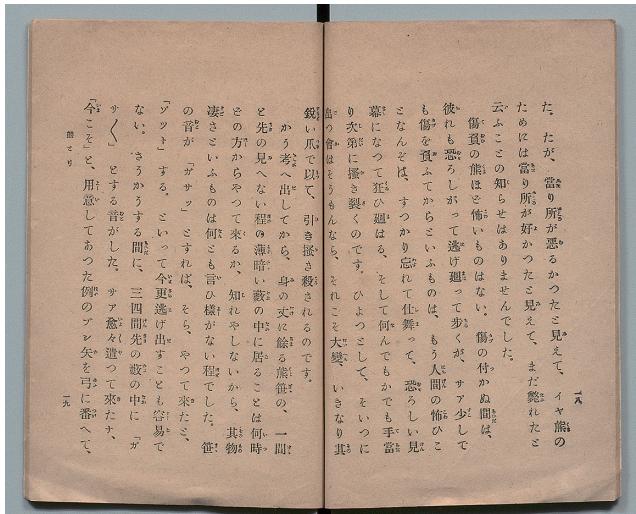 た。たが、當り所が悪るかつたと見えて、イヤ熊の
ためには當り所が好かつたと見えて、まだ斃れたと
云ふことの知らせはありませんでした。
傷負の熊ほど怖いものはない。傷の付かぬ間は、
彼れも恐ろしがつて逃げ廻つて歩くが、サア少しで
も傷を負ふてからといふものは、もう人間の怖ひこ
となんぞは、すつかり忘れて仕舞つて、恐ろしい見
幕になつて狂ひ廻はる、そして何んでもかでも手當
り次第に掻き裂くのです。ひよつとして、そいつに
出つ會はそうもんなら、それこそ大變、いきなり其
十八
鋭い爪で以て、引き掻き殺されるのです。
かう考へ出してから、身の丈に餘る熊笹の、一間
と先の見へない程の薄暗い藪の中に居ることは何時
どの方からやつて來るか、知れやしないから、其物
凄さといふものは何とも言ひ樣がない程でした。笹
の音が「ガサツ」とすれば、そら、やつて來たと、
「ゾツキ」する。といつて今更逃げ出すことも容易で
ない。さうかうする間に、三四間先の藪の中に「ガ
サ〱」とする音がした。サア愈々遣つて來たナ、
「今こそ」と、用意してあつた例のブシ矢を弓に番へて、
熊とり
十九